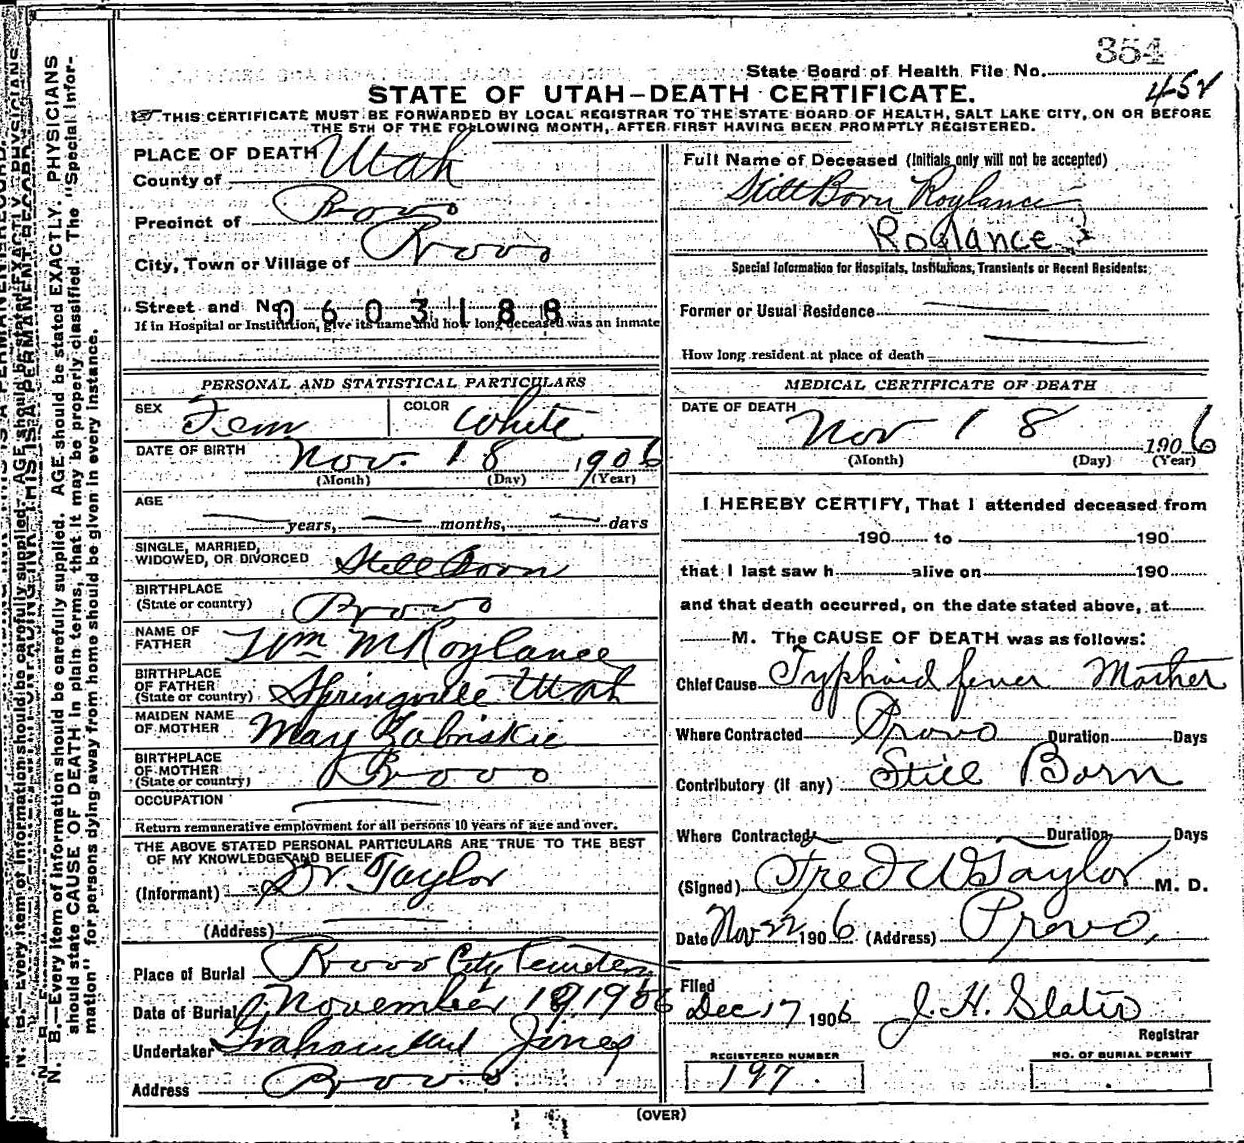 354
State Board of Health File No.
452
STATE OF UTAH—DEATH CERTIFICATE.
THIS CERTIFICATE MUST BE FORWARDED BY LOCAL REGISTRAR TO THE STATE BOARD OF HEALTH, SALT LAKE CITY, ON OR BEFORE
THE 5TH OF THE FOLLOWING MONTH, AFTER FIRST HAVING BEEN PROMPTLY REGISTERED.
PLACE OF DEATH
County of Utah
Precinct of Provo
City, Town or Village of Provo
Street and No. 0603188
If in Hospital or Institution, give its name and how long deceased was an inmate
PERSONAL AND STATISTICAL PARTICULARS
SEX Fem COLOR White
DATE OF BIRTH Nov. 18 1906
(Month) (Day) (Year)
AGE
years, months, days
SINGLE, MARRIED,
WIDOWED, OR DIVORCED Still Born
BIRTHPLACE
(State or country) Provo
NAME OF
FATHER Wm M Roylance
BIRTHPLACE
OF FATHER
(State or country) Springville Utah
MAIDEN NAME
OF MOTHER May Zabriskie
BIRTHPLACE
OF MOTHER
(State or country) Provo
OCCUPATION
Return remunerative employment for all persons 10 years of age and over.
THE ABOVE STATED PERSONAL PARTICULARS ARE TRUE TO THE BEST
OF MY KNOWLEDGE AND BELIEF
(Informant) Dr Taylor
(Address)
Place of Burial Provo City Cemetery
Date of Burial November 19, 1906
Undertaker Graham Jones
Address Provo
Full Name of Deceased (Initials only will not be accepted)
Still Born Roylance
Roylance
Special Information for Hospitals, Institutions, Transients or Recent Residents:
Former or Usual Residence
How long resident at place of death
MEDICAL CERTIFICATE OF DEATH
DATE OF DEATH Nov 18 1906
(Month) (Day) (Year)
I HEREBY CERTIFY, That I attended deceased from
190 to 190
that I last saw h alive on 190
and that death occurred, on the date stated above, at
M. The CAUSE OF DEATH was as follows:
Chief Cause Typhoid fever Mother
Where Contracted Provo Duration Days
Contributory (if any) Still Born
Where Contracted Duration Days
(Signed) Fred W Taylor M. D.
Date Nov 22 1906 (Address) Provo,
Filed
Dec 17 1906 J. H. Slater
Registrar
REGISTERED NUMBER
197
NO. OF BURIAL PERMIT
(OVER)
N. B.—Every item of information should be carefully supplied. AGE should be stated EXACTLY. PHYSICIANS
should state CAUSE OF DEATH in plain terms, that it may be properly classified. The "Special Infor-
mation" for persons dying away from home should be given in every instance.